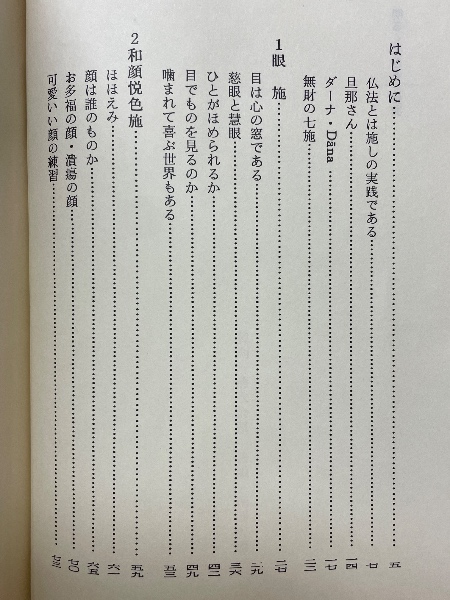 はじめに……五
仏法とは施しの実践である……七
旦那さん……一四
ダーナ・Dāna……一七
無財の七施……
1 眼 施……二七
目は心の窓である……二九
慈眼と慧眼……三六
ひとがほめられるか……四二
目でものを見るのか……四九
噛まれて喜ぶ世界もある……五三
2 和顔悦色施……五九
ほほえみ……六一
顔は誰のものか……六五
お多福の顔・潰瘍の顔……七〇
可愛いい顔の練習……七三